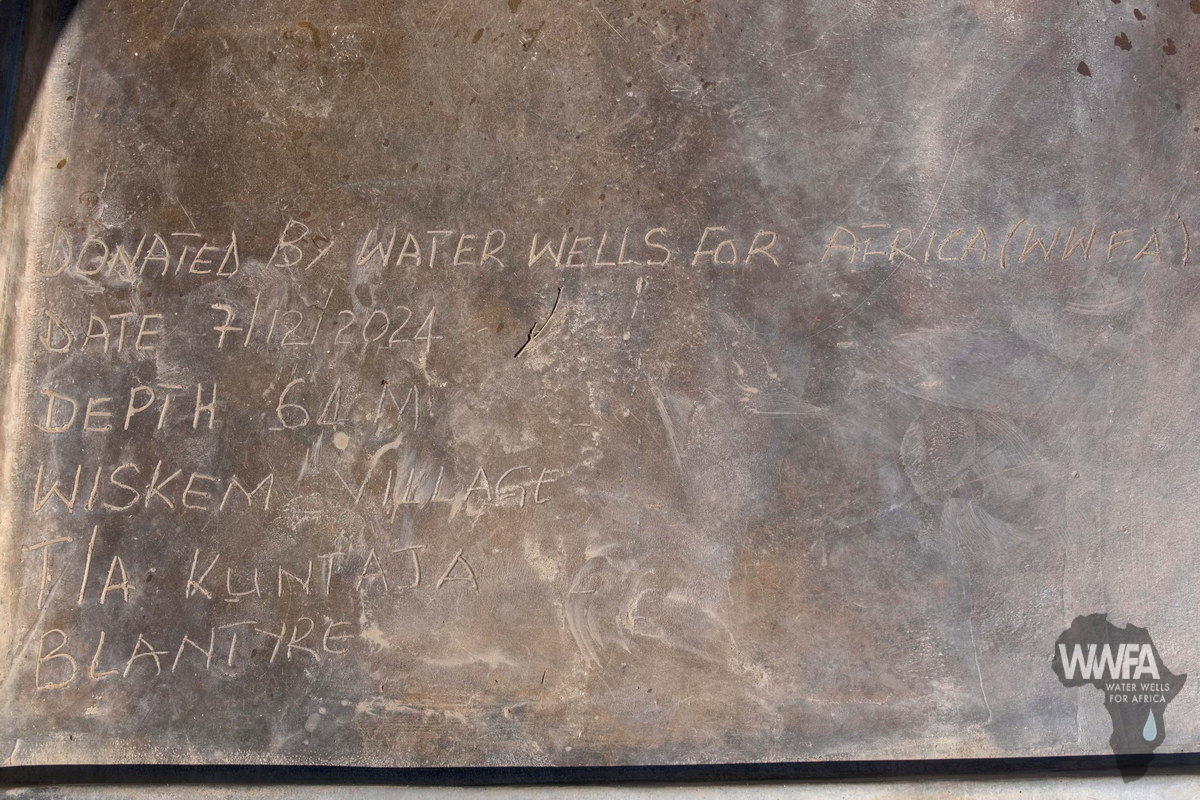 DONATED BY WATER WELLS FOR AFRICA (WWFA)
DATE 7/12/2024
DEPTH 61 M
WISKEM VILLAGE
T/A KUNTAJA
BLANTYRE
WWFA
WATER WELLS
FOR AFRICA